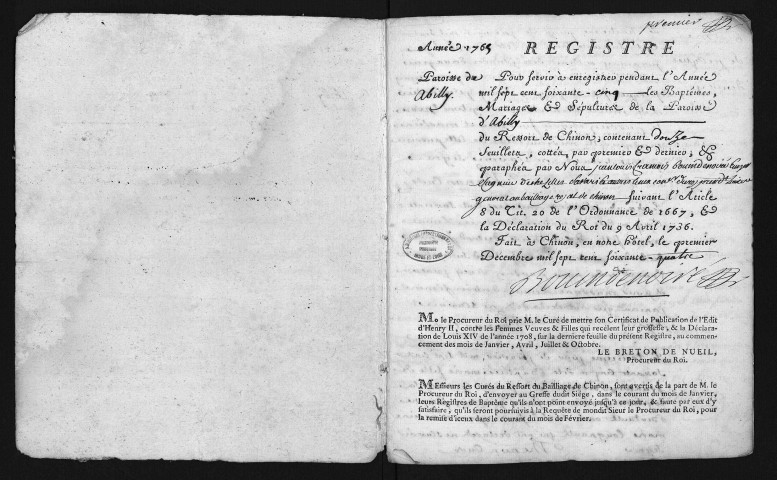 premier
Année 1765 REGISTRE
Paroisse de Abilly
Pour servir à enregistrer pendant l'Année
mil sept cent soixante-cinq les Baptêmes,
Mariages & Sépultures de la Paroisse
d'Abilly
du Ressort de Chinon, contenant douze
feuillets, cottés, par premier & dernier, &
paraphés par Nous
suivant l'Article
8 du Tit. 20 de l'Ordonnance de 1667, &
la Déclaration du Roi du 9 Avril 1736.
Fait à Chinon, en notre hôtel, le premier
Décembre mil sept cent soixante-quatre
Mr le Procureur du Roi prie M. le Curé de mettre son Certificat de Publication de l'Edit
d'Henry II, contre les Femmes Veuves & Filles qui recélent leur grossesse; & la Déclara-
tion de Louis XIV de l'année 1708, sur la derniere feuille du présent Registre, au commen-
cement des mois de Janvier, Avril, Juillet & Octobre.
LE BRETON DE NUEIL,
Procureur du Roi.
Messieurs les Curés du Ressort du Bailliage de Chinon, sont avertis de la part de M. le
Procureur du Roi, d'envoyer au Greffe dudit Siége, dans le courant du mois de Janvier,
leurs Registres de Baptême qu'ils n'ont point envoyé jusqu'à ce jour, & faute par eux d'y
satisfaire, qu'ils seront poursuivis à la Requête de mondit Sieur le Procureur du Roi, pour
la remise d'iceux dans le courant du mois de Février.